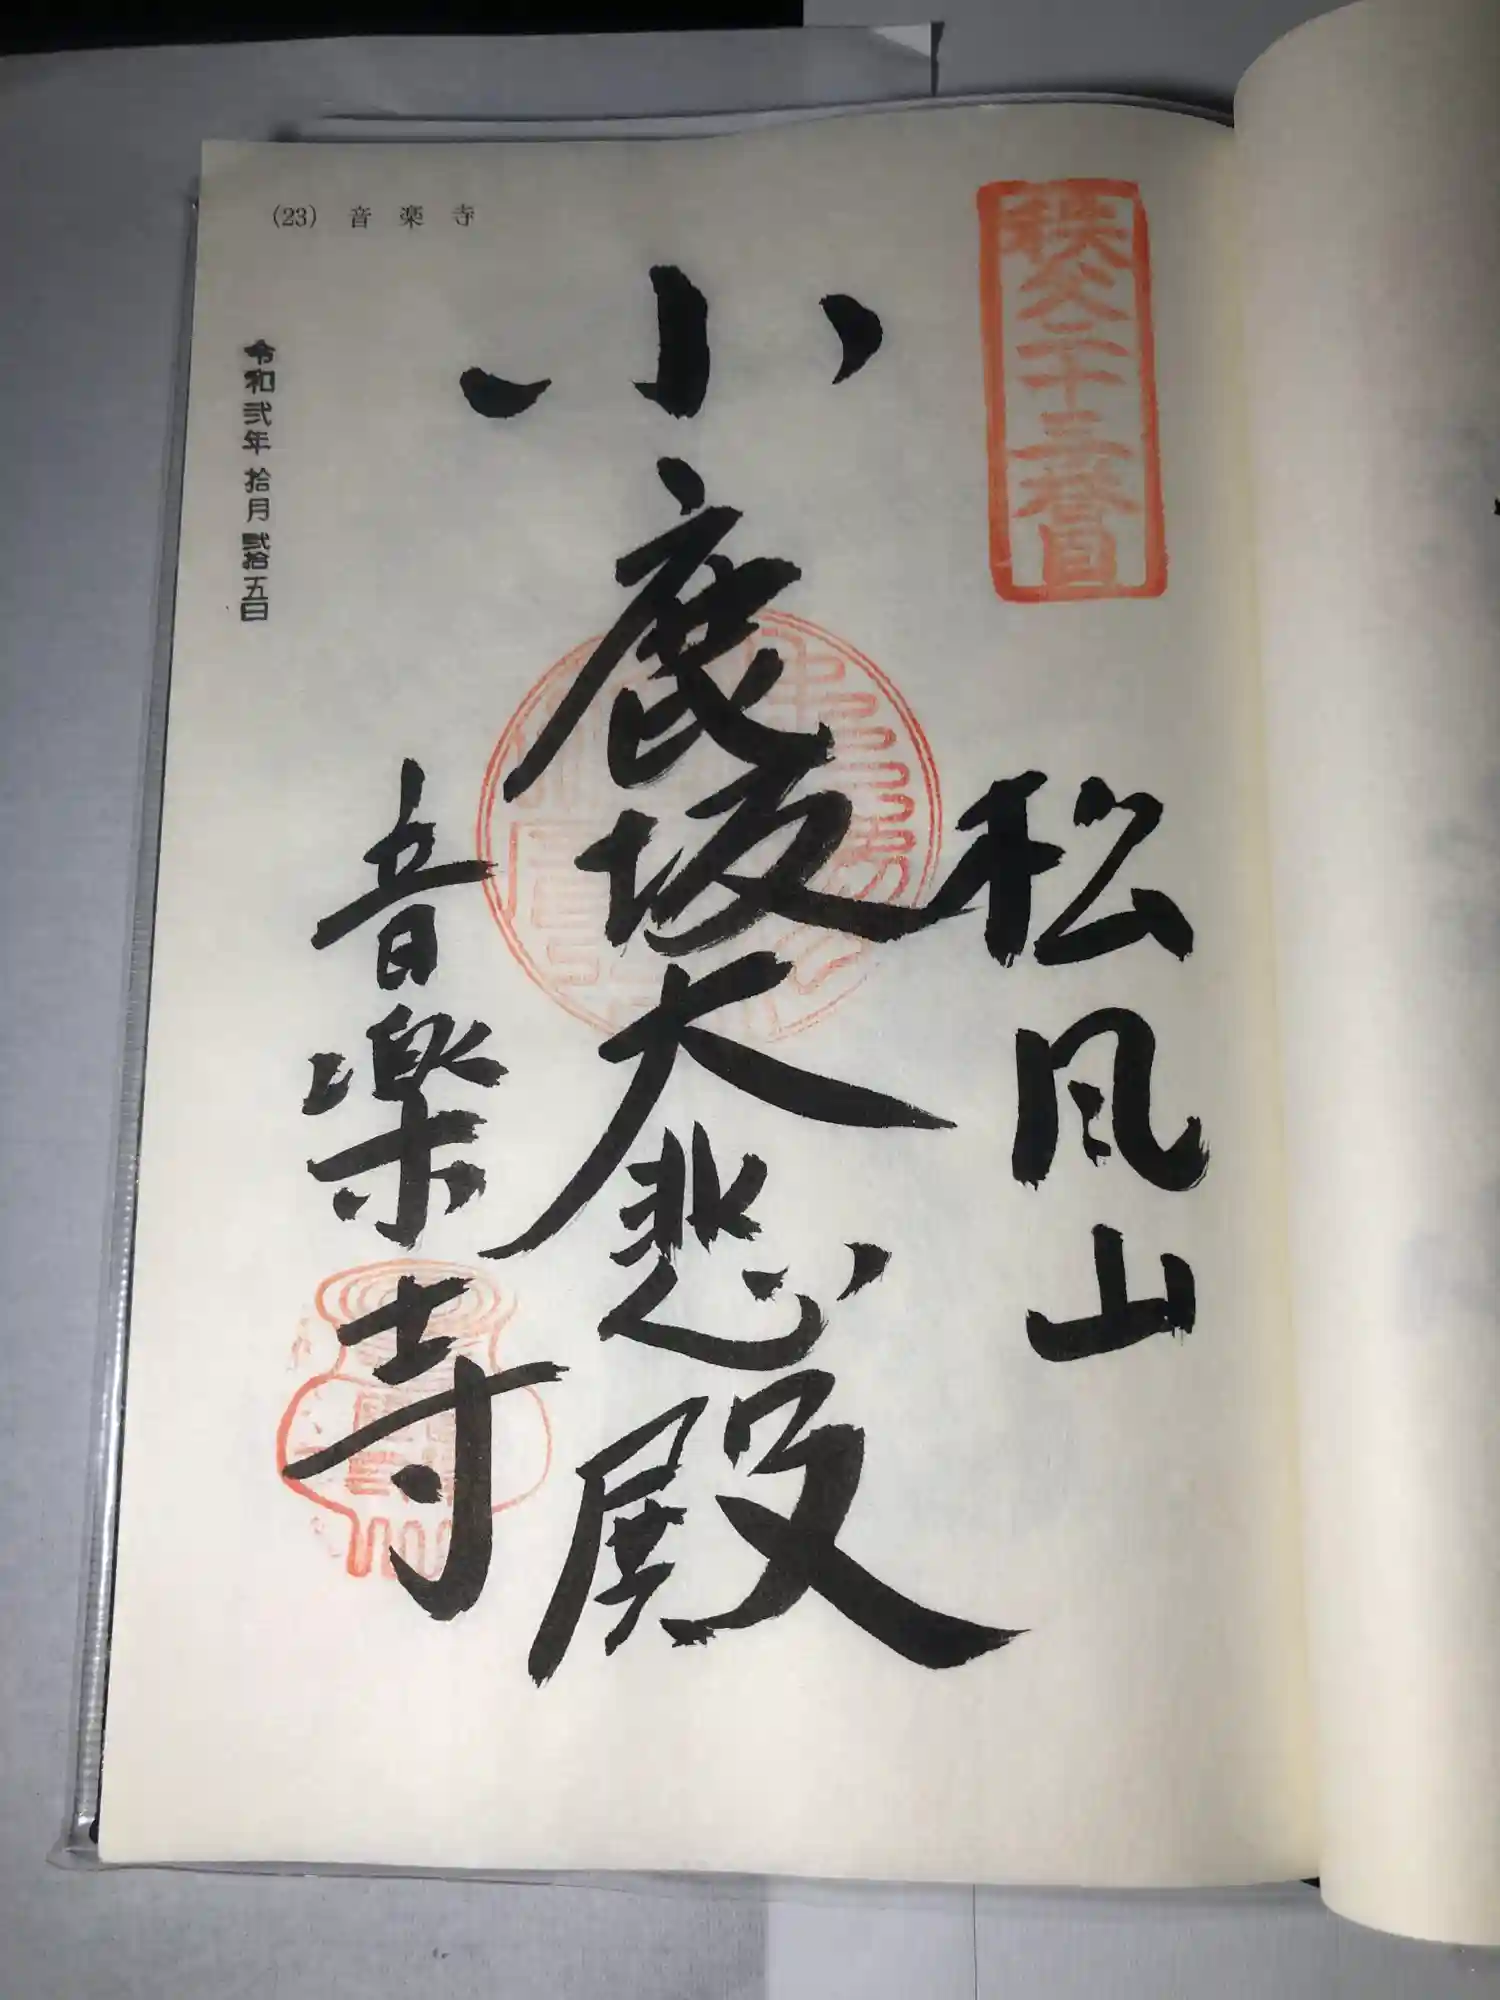 (23) 音楽寺
秩父二十三番目
松風山
小鹿坂大悲殿
音楽寺
令和弐年拾月弐拾五日